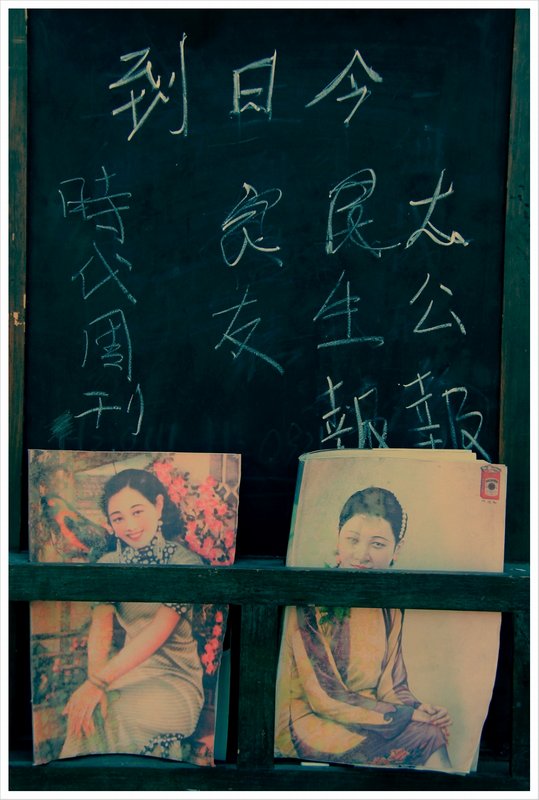 今日到
太公報
民生報
良友
時代周刊